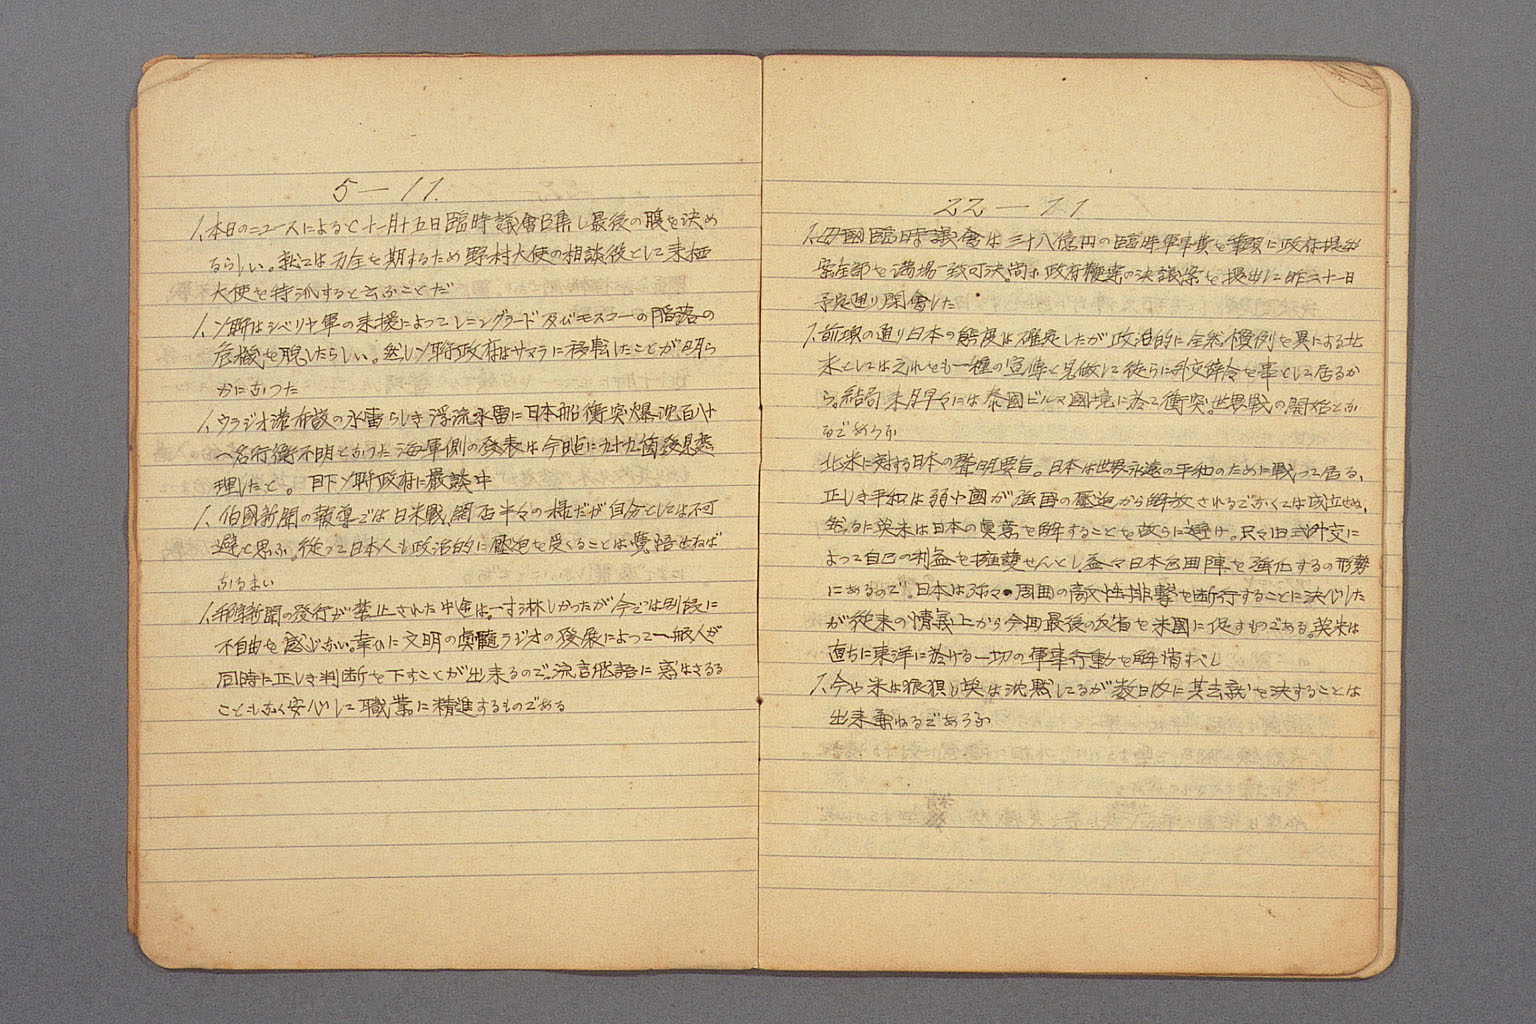 5—11.
1、本日のニュースによると十一月十五日臨時議會召集し最後の腹を決め
るらしい。就ては万全を期するため野村大使の相談役として来栖
大使を特派すると云ふことだ
1、ソ聯はシベリヤ軍の来援によってレニングラード及びモスコーの陥落の
危機を脱したらしい。然しソ聯政府はサマラに移転したことが明ら
かになった
1、ウラジオ港布設の水雷らしき浮流水雷に日本船衝突爆沈百八十
名行衛不明となった海軍側の発表は今日に九十九箇発見処
理したと。目下ソ聯政府に厳談中
1、伯國新聞の報導では日米戦開否半々の様だが自分としては不可
避と思ふ。従って日本人も政治的に圧迫を受くることは覺悟せねば
なるまい
1、邦字新聞の発行が禁止された中途は一寸淋しかったが今では別段に
不自由を感じない。幸ひに文明の真髄ラジオの發展によって一般人が
同時に正しき判断を下すことが出来るので流言蜚語に惑はさるる
こともなく安心して職業に精進するものである
22—11
1、母國臨時議會は三十八億円の臨時軍事費を筆頭に政府提出
案全部を満場一致可決尚ホ政府鞭撻の決議案を提出して昨二十一日
予定通り閉會した
1、前項の通り日本の態度は確定したが政治的に全然慣例を異にする北
米としては之れとも一種の宣傳と見做して徒らに外交辞令を事として居るか
ら。結局来月早々には泰國ビルマ國境に於て衝突。世界戦の開始とな
るであらふ
北米に対する日本の聲明要旨。日本は世界永遠の平和のために戦って居る、
正しき平和は弱小國が強国の圧迫から解放されるでなくては成立せぬ、
然るに英米は日本の真意を解することを故らに避け。只々旧式外交に
よって自己の利益を擁護せんとし益々日本包囲陣を強化するの形勢
にあるので。日本は弥々周囲の敵性排撃を断行することに決心した
が従来の情義上から今一回最後の反省を米國に促すものである。英米は
直ちに東洋に於ける一切の軍事行動を解消すべし
1、今や米は狼狽し英は沈黙してるが数日内に其去就を決することは
出来兼ねるであらふ
精